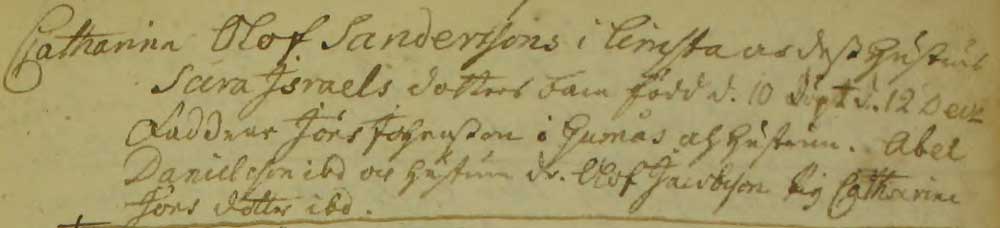 Catharina Olof Sanderssons i Limsta och dess hustrus
Sara Israels dotters barn född d. 10 döpt d. 12 Decr
Faddrar Jöns Johansson i Gumås och hustrun. Abel
Danielsson ibd och hustrun dr. Olof Jacobsson pig Catharina
Jöns dotter ibd.